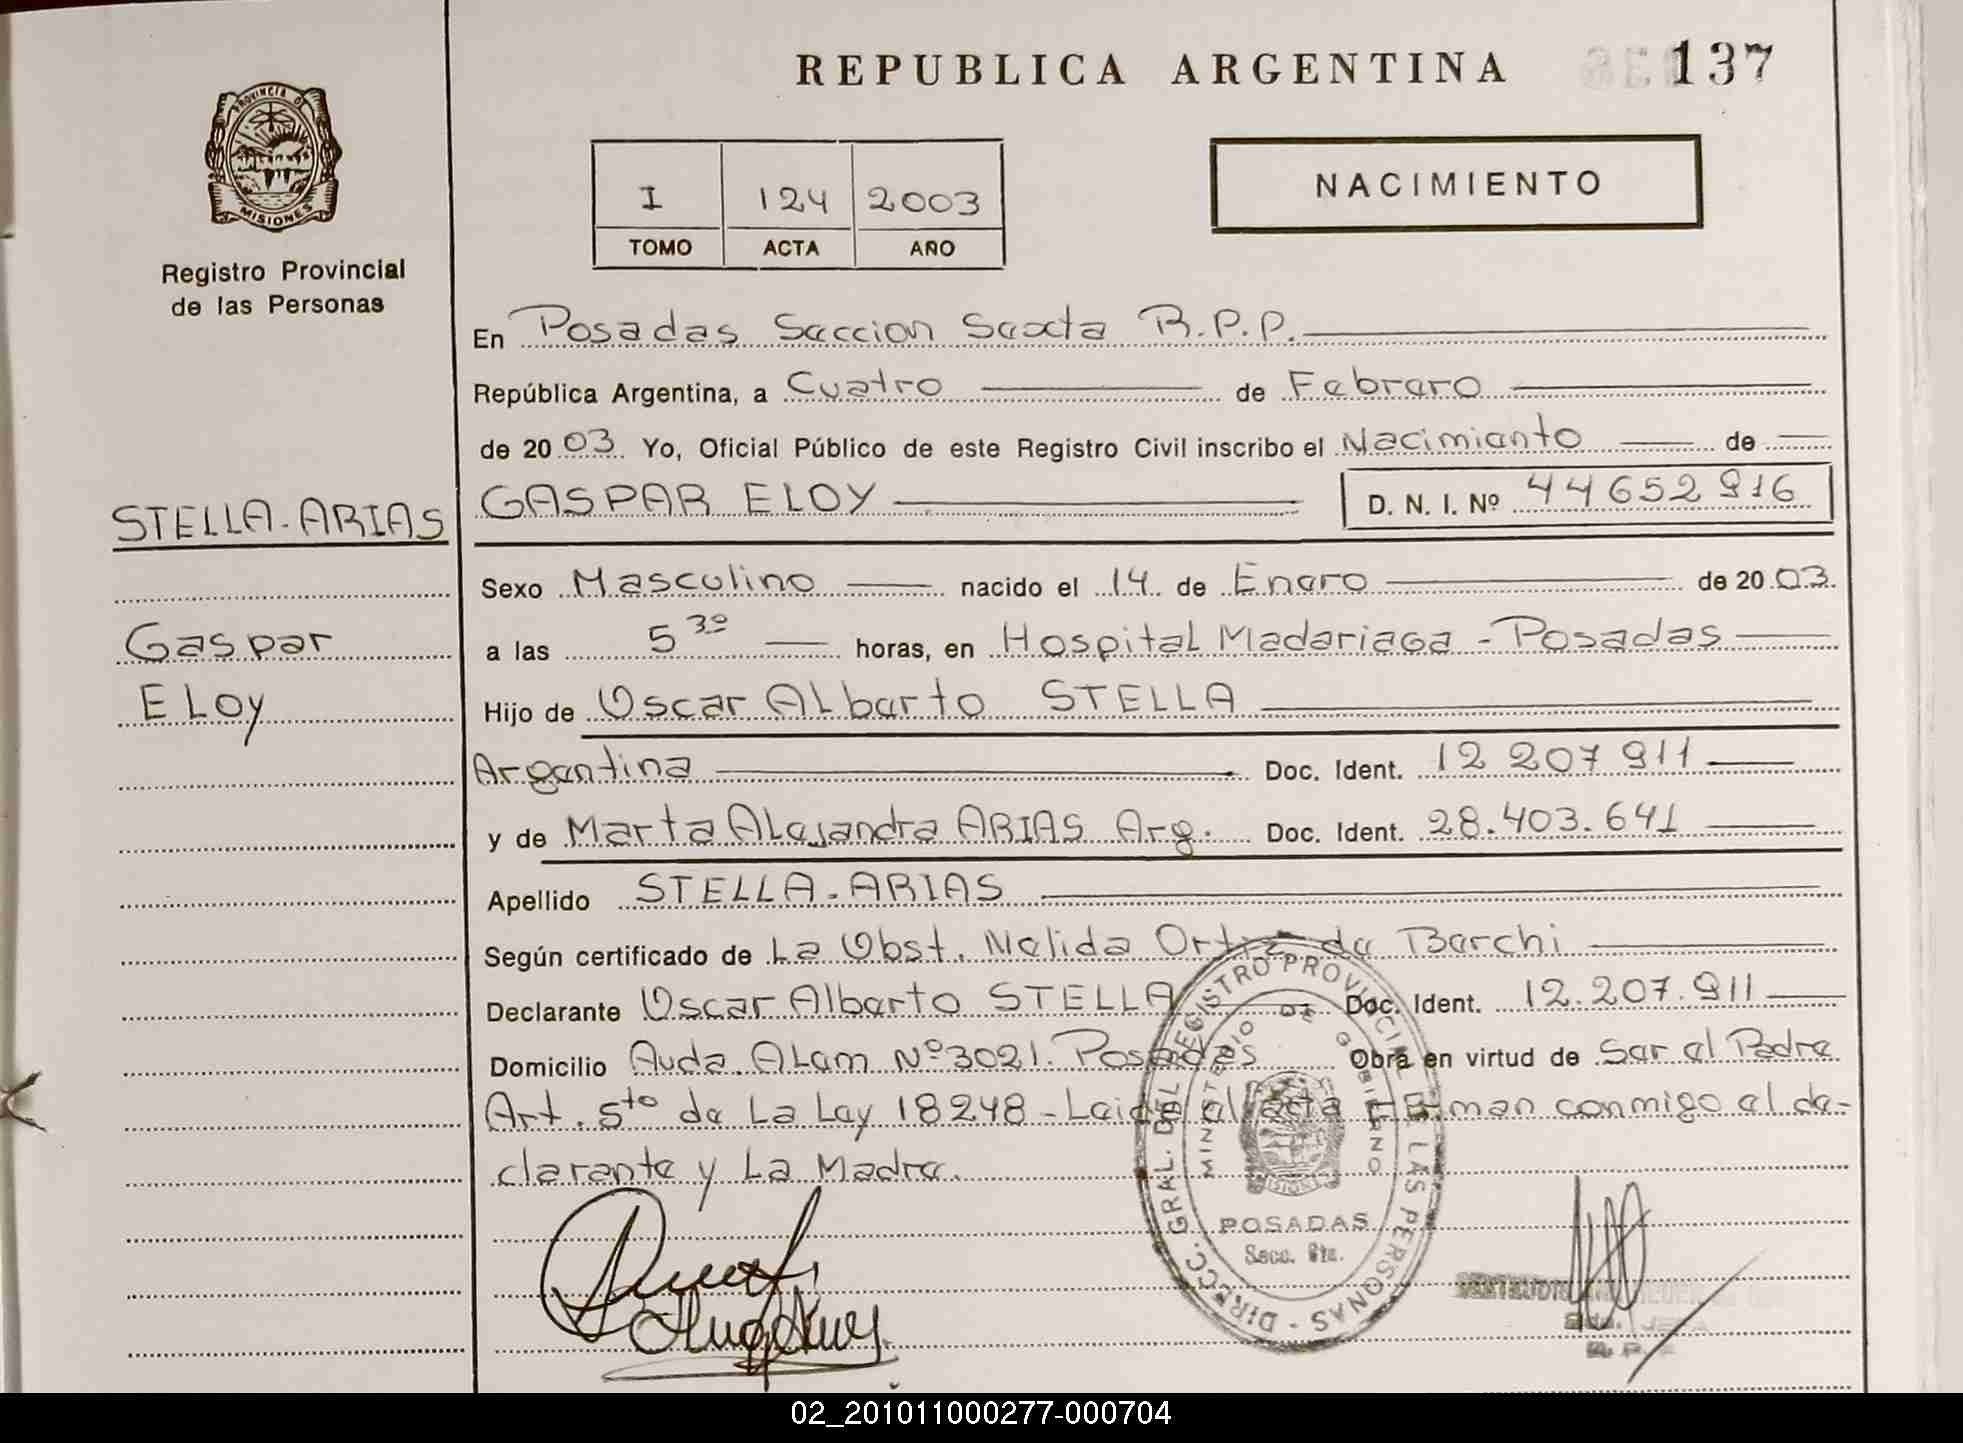 REPUBLICA ARGENTINA
137
PROVINCIA DE
MISIONES
Registro Provincial
de las Personas
I 124 2003
TOMO ACTA AÑO
NACIMIENTO
En Posadas Seccion Sexta R.P.P.
República Argentina, a Cuatro de Febrero
de 2003 Yo, Oficial Público de este Registro Civil inscribo el Nacimiento de
STELLA-ARIAS
GASPAR ELOY D. N. I. Nº 44652916
Sexo Masculino nacido el 14 de Enero de 2003.
Gaspar
a las 5 30 horas, en Hospital Madariaga - Posadas
Eloy
Hijo de Oscar Alberto STELLA
Argentina Doc. Ident. 12 207 911
y de Marta Alejandra ARIAS Arg. Doc. Ident. 28.403.641
Apellido STELLA-ARIAS
Según certificado de La Obst. Nelida Ortiz de Barchi
Declarante Oscar Alberto STELLA Doc. Ident. 12.207.911
Domicilio Avda. Alem Nº 3021. Posadas Obra en virtud de Ser el Padre
Art. 5to de La Ley 18248 - Leida el acta Firman conmigo el de-
clarante y La Madre.
DIRECC. GRAL. DEL REGISTRO PROVINCIAL DE LAS PERSONAS -
MINISTERIO DE GOBIERNO
MISIONES
POSADAS
Secc. 6ta.
02_201011000277-000704